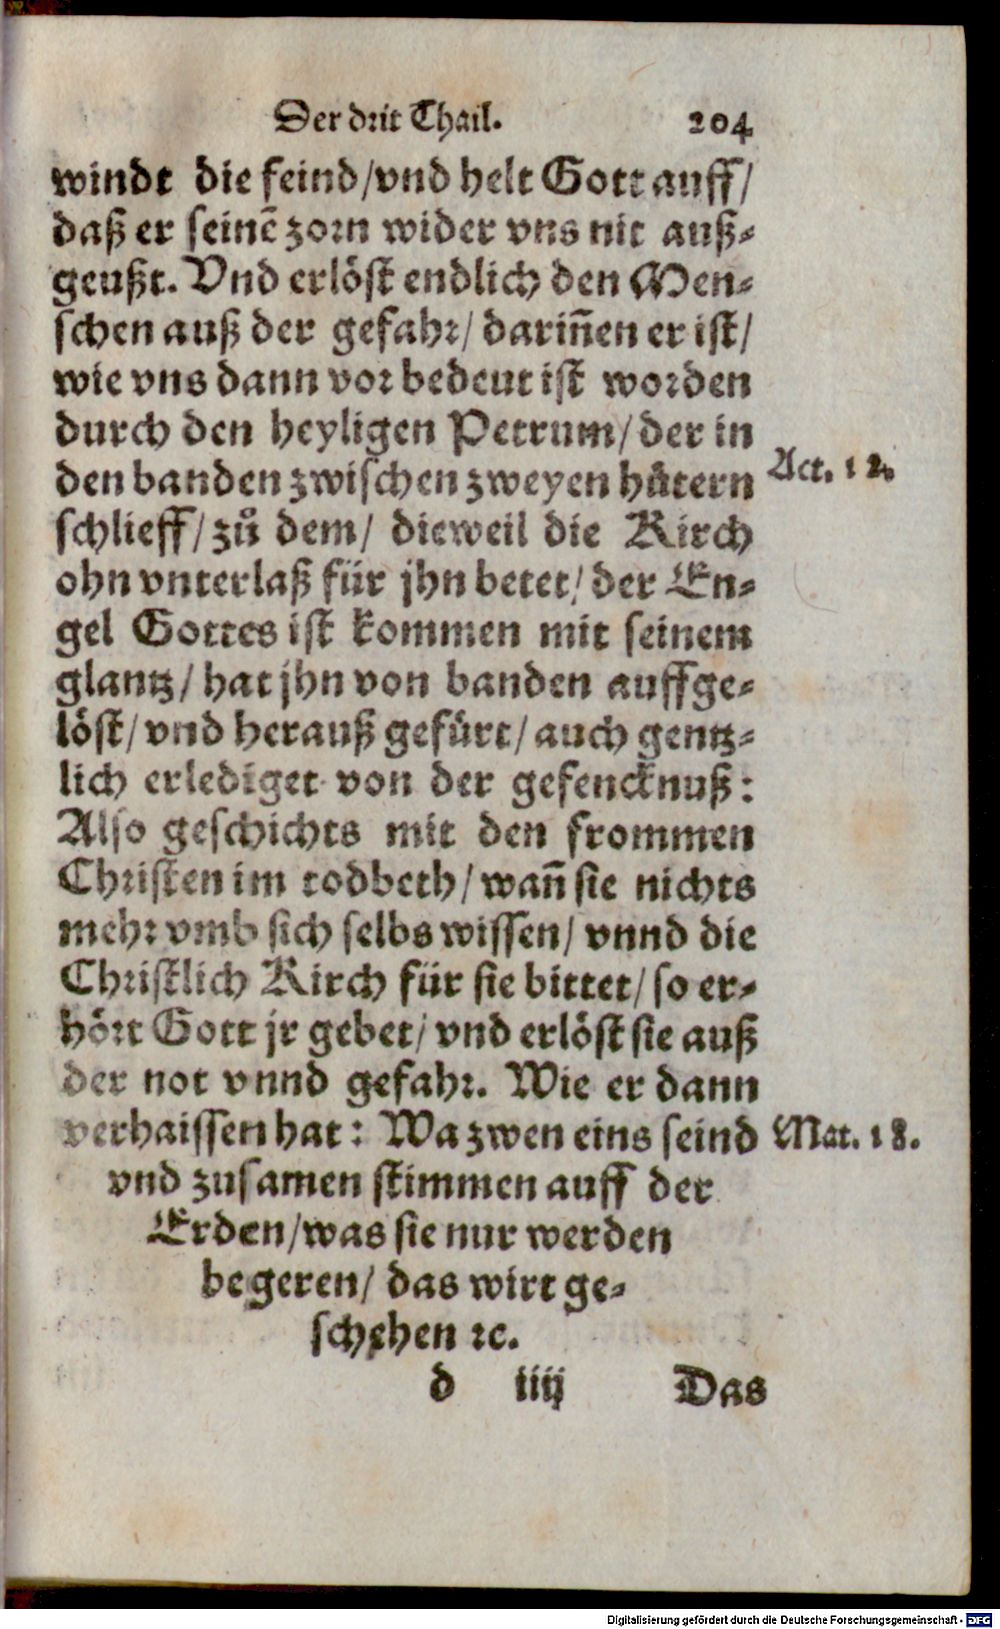 Der drit Thail. 204
windt die feind/vnd helt Gott auff/
daß er seinē zorn wider vns nit auß-
geußt. Vnd erlöst endlich den Men-
schen auß der gefahr/ dariñen er ist/
wie vns dann vor bedeut ist worden
durch den heyligen Petrum/ der in
den banden zwischen zweyen hůtern Act. 12.
schlieff/ zů dem/ dieweil die Kirch
ohn vnterlaß für jhn betet/ der En-
gel Gottes ist kommen mit seinem
glantz/ hat jhn von banden auffge-
löst/ vnd herauß gefürt/ auch gentz-
lich erlediget von der gefencknuß:
Also geschichts mit den frommen
Christen im todbeth/ wañ sie nichts
mehr vmb sich selbs wissen/ vnnd die
Christlich Kirch für sie bittet/ so er-
hört Gott jr gebet/ vnd erlöst sie auß
der not vnnd gefahr. Wie er dann
verhaissen hat: Wa zwen eins seind Mat. 18.
vnd zusamen stimmen auff der
Erden/was sie nur werden
begeren/ das wirt ge-
schehen ꝛc.
d iiij Das
Digitalisierung gefördert durch die Deutsche Forschungsgemeinschaft - DFG